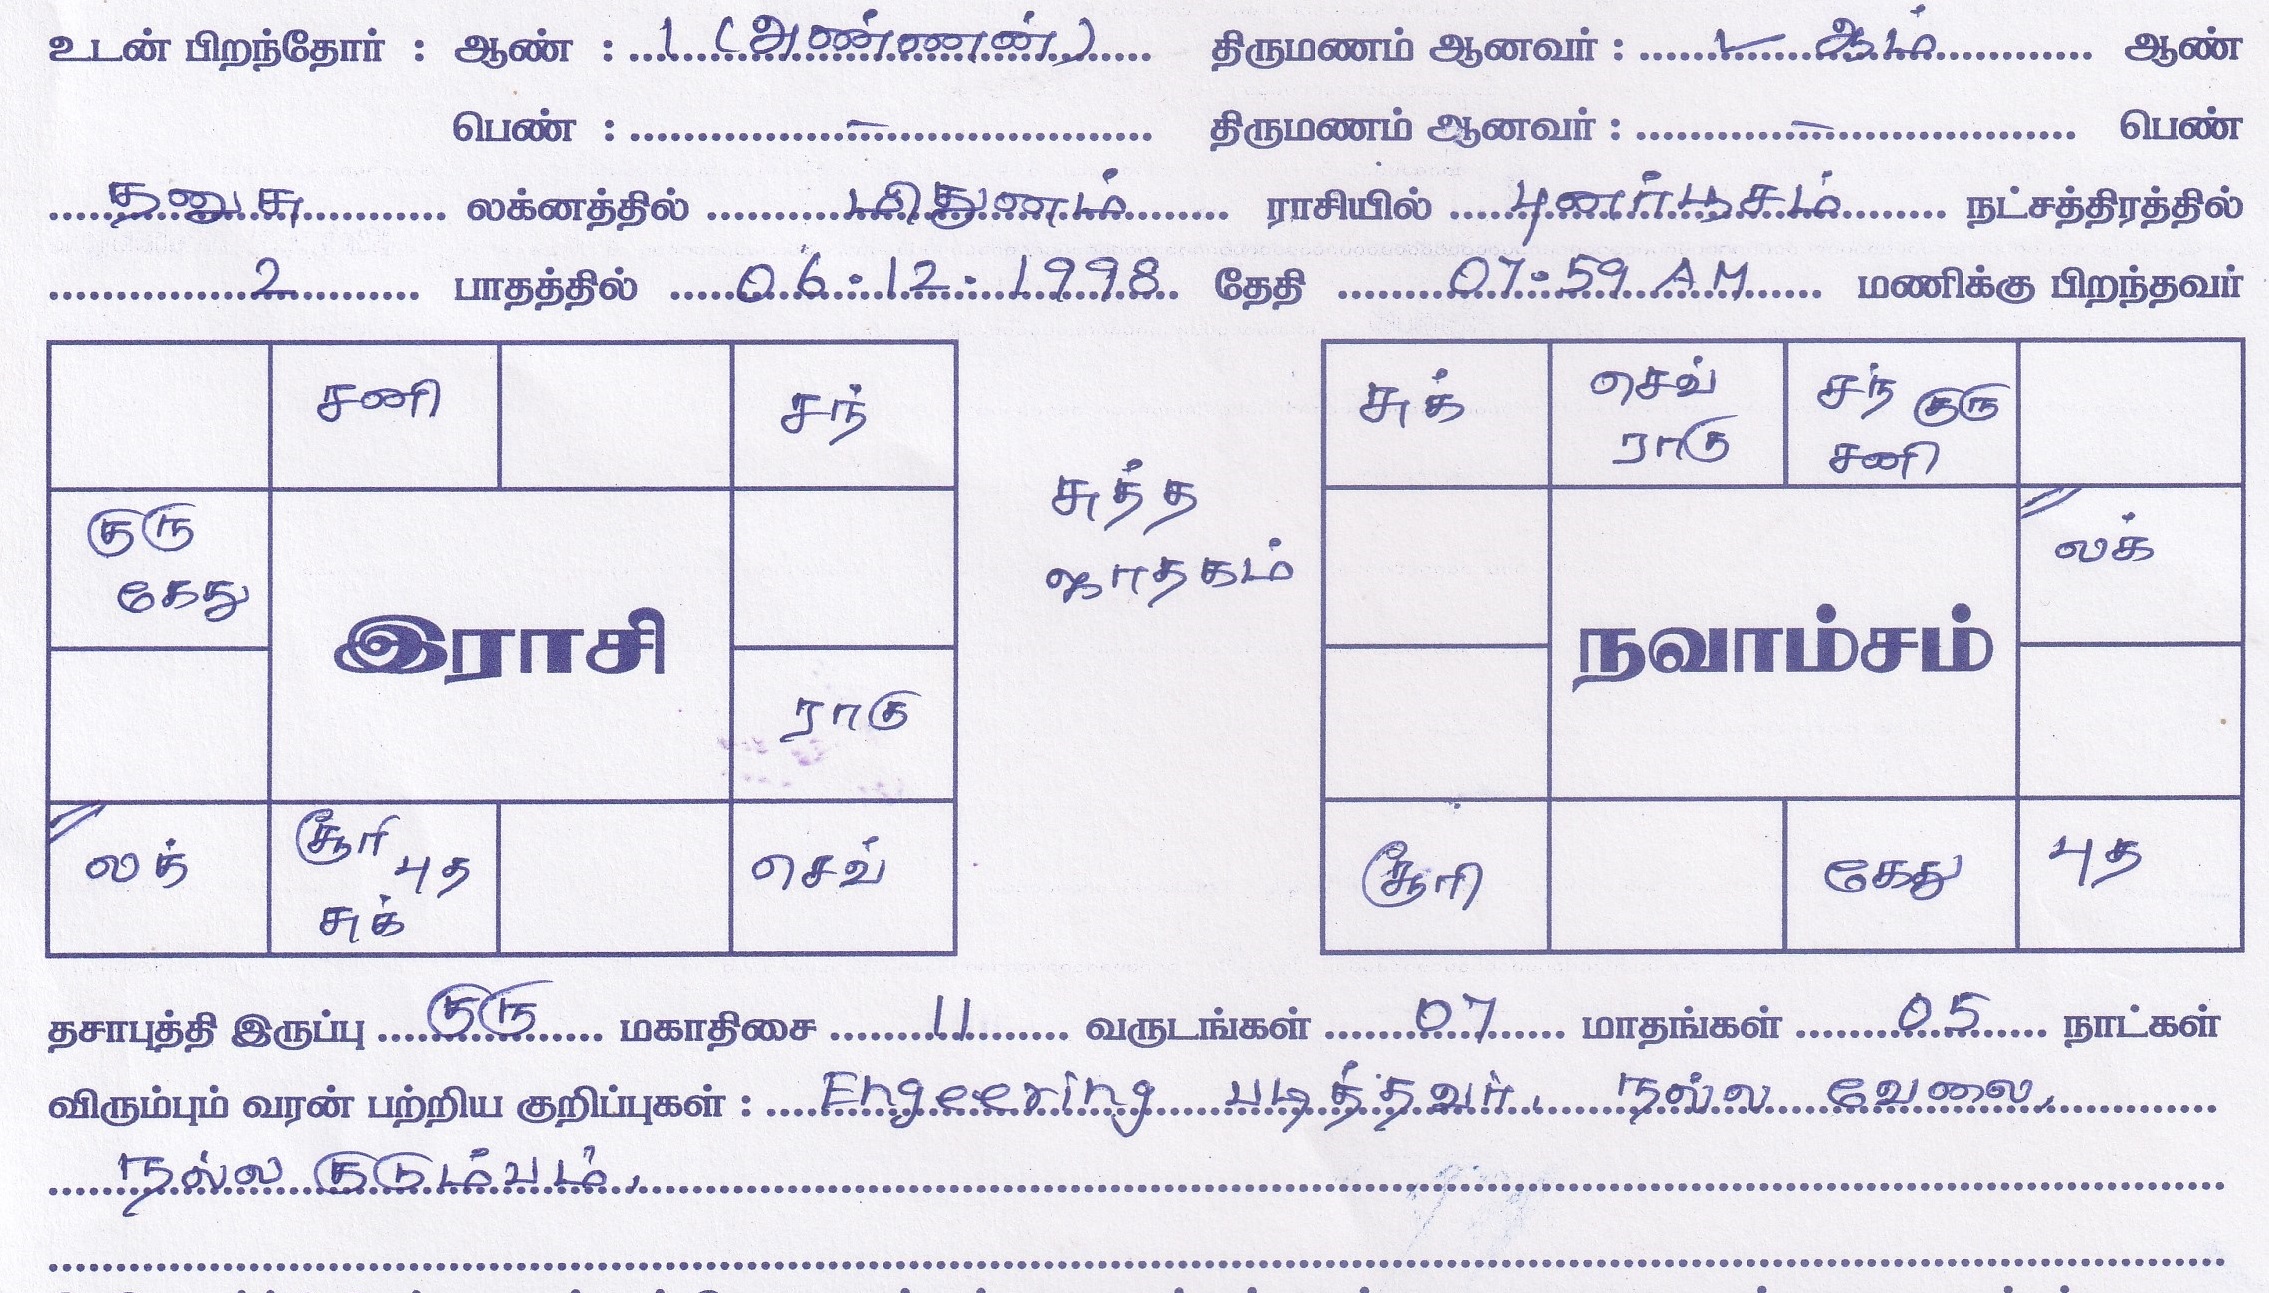 உடன் பிறந்தோர் : ஆண் : 1 (அண்ணன்) திருமணம் ஆனவர் : ஆம் ஆண்
பெண் : – திருமணம் ஆனவர் : – பெண்
தனுசு லக்னத்தில் மிதுனம் ராசியில் புனர்பூசம் நட்சத்திரத்தில்
2 பாதத்தில் 06.12.1998 தேதி 07.59 AM மணிக்கு பிறந்தவர்
சனி சந்
குரு கேது
இராசி
ராகு
லக் சூரி புத சுக் செவ்
சுத்த
ஜாதகம்
சுக் செவ் ராகு சந் குரு சனி
லக்
நவாம்சம்
சூரி கேது புத
தசாபுத்தி இருப்பு குரு மகாதிசை 11 வருடங்கள் 07 மாதங்கள் 05 நாட்கள்
விரும்பும் வரன் பற்றிய குறிப்புகள் : Engeering படித்தவர், நல்ல வேலை,
நல்ல குடும்பம்.